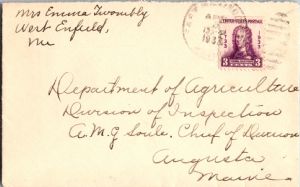 Mrs Emma Twombly
West Enfield,
Me
UNITED STATES POSTAGE
3 3
Department of Agriculture
Division of Inspection
A.M.G. Soule, Chief of Division
Augusta
Maine